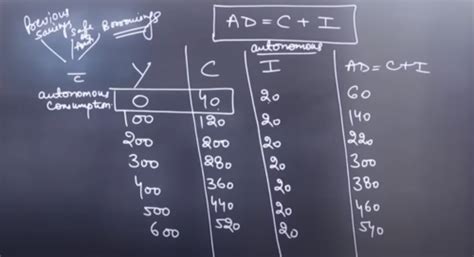 Previous Savings
Sale of Asset
Borrowings
AD = C + I
autonomous
c̅
autonomous Consumption
Y C I AD = C + I
0 40 20 60
100 120 20 140
200 200 20 220
300 280 20 300
400 360 20 380
500 440 20 460
600 520 20 540